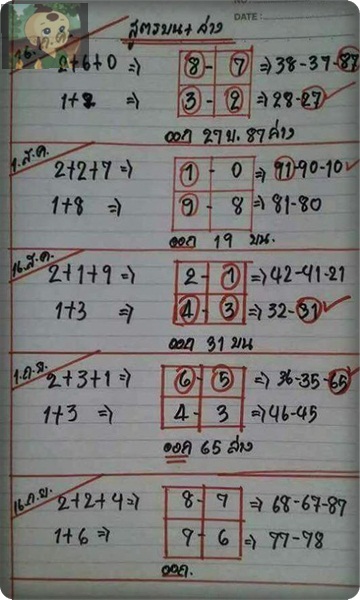 DATE:
สูตรบน+ล่าง
16.
2+6+0 ⇒ 8 - 7 ⇒ 38-37-87
1+2 ⇒ 3 - 2 ⇒ 28-27 ✓
ออก 27 บ. 87 ล่าง
1.ส.ค.
2+2+7 ⇒ 1 - 0 ⇒ 91-90-10 ✓
1+8 ⇒ 9 - 8 ⇒ 81-80
ออก 19 บน.
16.ส.ค.
2+1+9 ⇒ 2 - 1 ⇒ 42-41-21
1+3 ⇒ 4 - 3 ⇒ 32-31 ✓
ออก 31 บน
1.ก.ย.
2+3+1 ⇒ 6 - 5 ⇒ 36-35-65 ✓
1+3 ⇒ 4 - 3 ⇒ 46-45
ออก 65 ล่าง
16.ก.ย.
2+2+4 ⇒ 8 - 7 ⇒ 68-67-87
1+6 ⇒ 7 - 6 ⇒ 77-78
ออก.